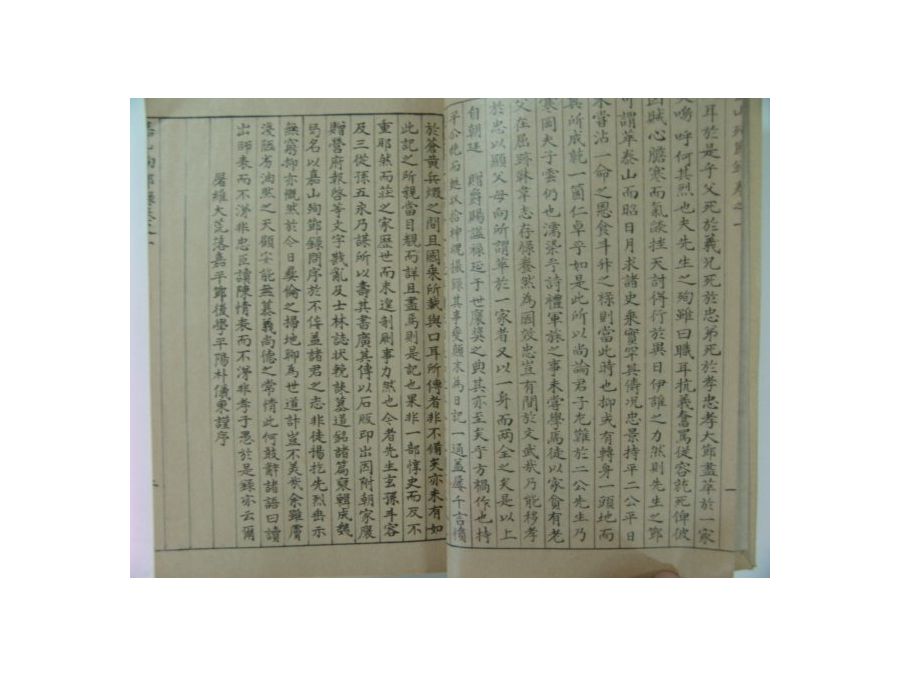 耳於是乎父死於義兄死於忠弟死於孝忠孝大節盡萃於一家
嗚呼何其烈也夫先生之殉雖曰職耳抗義奮罵從容就死俾彼
賊心膽寒而氣諁挫天討得行於異日伊誰之力然則先生之節
可謂華泰山而昭日月求諸史乘實罕其儔况忠景持平二公平日
未嘗沾一命之恩食斗升之祿則當此時也抑或有轉身一頭地而
其所成乾一箇仁卓乎如是此所以尚論君子尤難於二公先生乃
寒岡夫子雲仍也濡染乎詩禮軍旅之事未嘗學焉徒以家貧有老
父在屈跡靺韋志存祿養然爲國效忠豈有間於文武哉乃能移孝
於忠以顯父母向所謂萃於一家者又以一身而兩全之矣是以上
自朝廷 贈爵賜諡祿延于世褒奬之典其亦至矣乎方禍作也持
平公
於蒼黃兵燹之間且國乘所載與口耳所傳者非不備矣亦未有如
此記之所親當目覩而詳且盡焉則是記也果非一部惇史而反不
重耶然而莊之家歷世而未遑剞劂事力然也今者先生玄孫斗容
及三從孫五永乃謀所以壽其書廣其傳以石版印出因附朝家褒
贈營府報啓等文字戡亂及士林誌狀輓誄墓道銘諸篇裒輯成魏
名以嘉山殉節錄閱序於不侫蓋諸君之志非徒揚扢先烈垂示
無窮抑亦慨然於今日彛倫之掃地聊爲世道計豈不美哉余雖膚
淺陋劣油然之天顧安能無慕義尚德之常情此何敢辭諸語曰讀
出師表而不涕非忠臣讀陳情表而不涕非孝子愚於是錄亦云爾
屠維大芒落嘉平節後學平陽朴儀東謹序